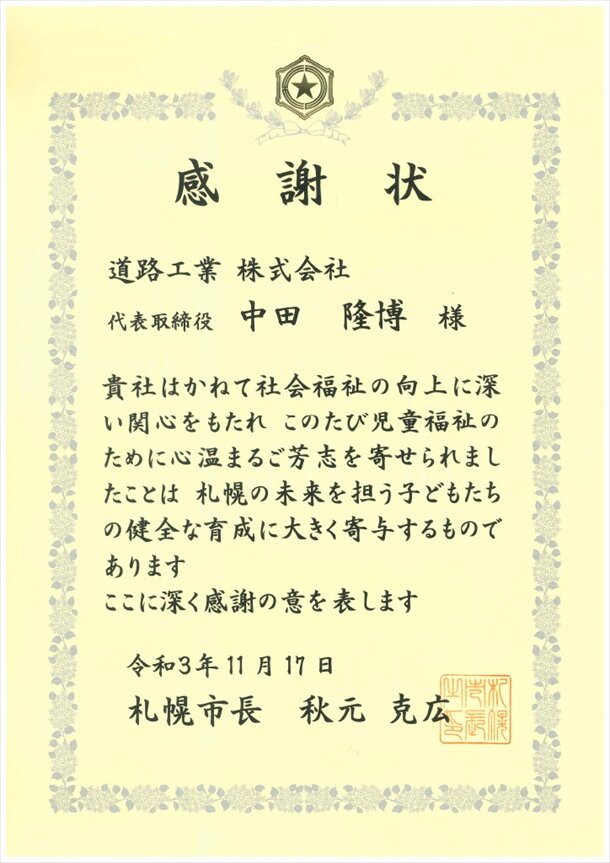 感謝状
道路工業 株式会社
代表取締役 中田 隆博 様
貴社はかねて社会福祉の向上に深
い関心をもたれ このたび児童福祉の
ために心温まるご芳志を寄せられまし
たことは 札幌の未来を担う子どもたち
の健全な育成に大きく寄与するもので
あります
ここに深く感謝の意を表します
令和3年11月17日
札幌市長 秋元 克広
札幌市長之印